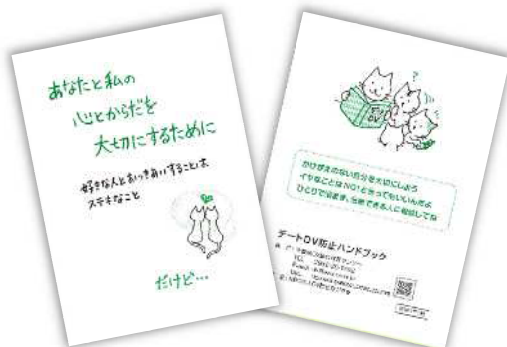 あなたと私の
心とからだを
大切にするために
好きな人とおつきあいすることは
ステキなこと
だけど…
デートDV
かけがえのない自分を大切にしよう
イヤなことはNO!と言ってもいいんだよ
ひとりで悩まず、信頼できる人に相談してね
デートDV防止ハンドブック